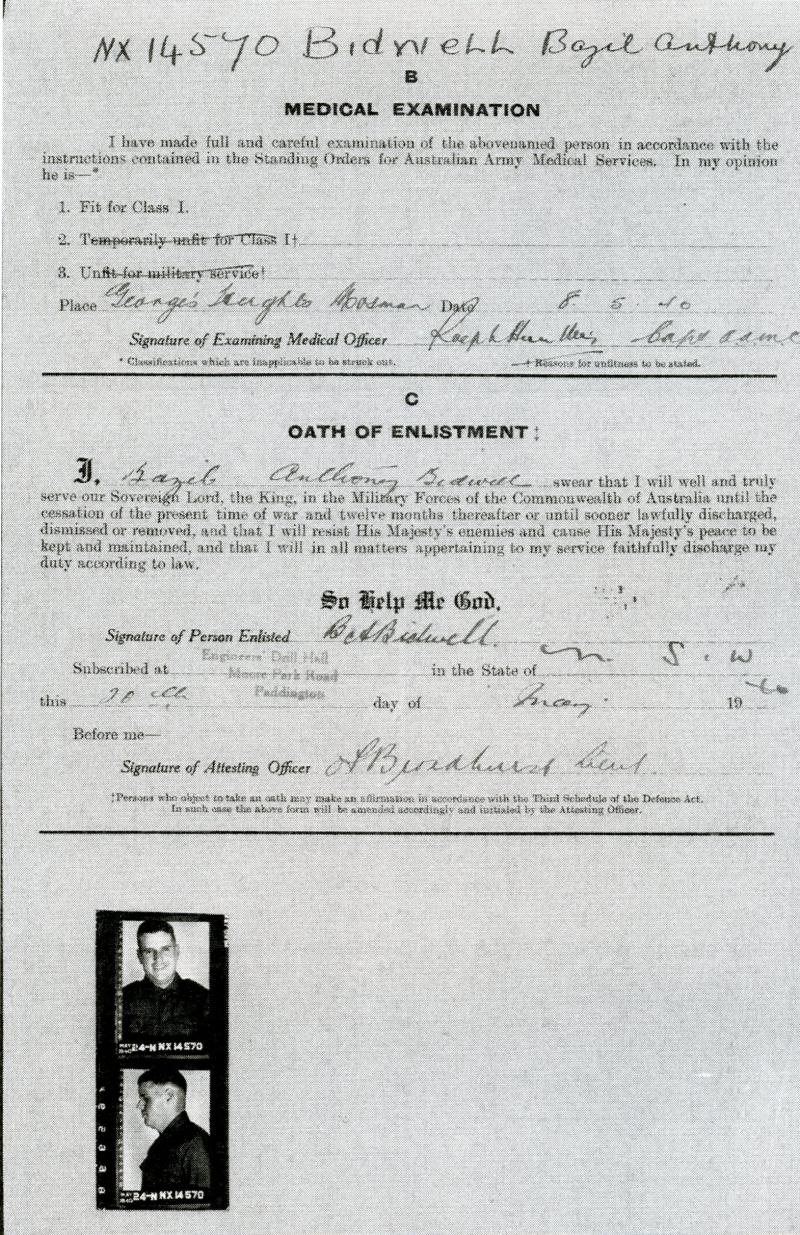 NX 14570 Bidwell Bazil Anthony
B
MEDICAL EXAMINATION
I have made full and careful examination of the abovenamed person in accordance with the
instructions contained in the Standing Orders for Australian Army Medical Services. In my opinion
he is—*
1. Fit for Class I.
2. Temporarily unfit for Class I†
3. Unfit for military service†
Place George's Heights Mosman Date 8 5 40
Signature of Examining Medical Officer Ralph Capt AAMC
* Classifications which are inapplicable to be struck out. † Reasons for unfitness to be stated.
C
OATH OF ENLISTMENT‡
I, Bazil Anthony Bidwell swear that I will well and truly
serve our Sovereign Lord, the King, in the Military Forces of the Commonwealth of Australia until the
cessation of the present time of war and twelve months thereafter or until sooner lawfully discharged,
dismissed or removed, and that I will resist His Majesty's enemies and cause His Majesty's peace to be
kept and maintained, and that I will in all matters appertaining to my service faithfully discharge my
duty according to law.
So Help Me God.
Signature of Person Enlisted BABidwell.
Engineers' Drill Hall
Subscribed at Moore Park Road in the State of N. S. W
Paddington
this 20th day of May 1940
Before me—
Signature of Attesting Officer Broadhurst Lieut.
‡Persons who object to take an oath may make an affirmation in accordance with the Third Schedule of the Defence Act.
In such case the above form will be amended accordingly and initialed by the Attesting Officer.
MAY 1940 24-N NX14570
MAY 1940 24-N NX14570